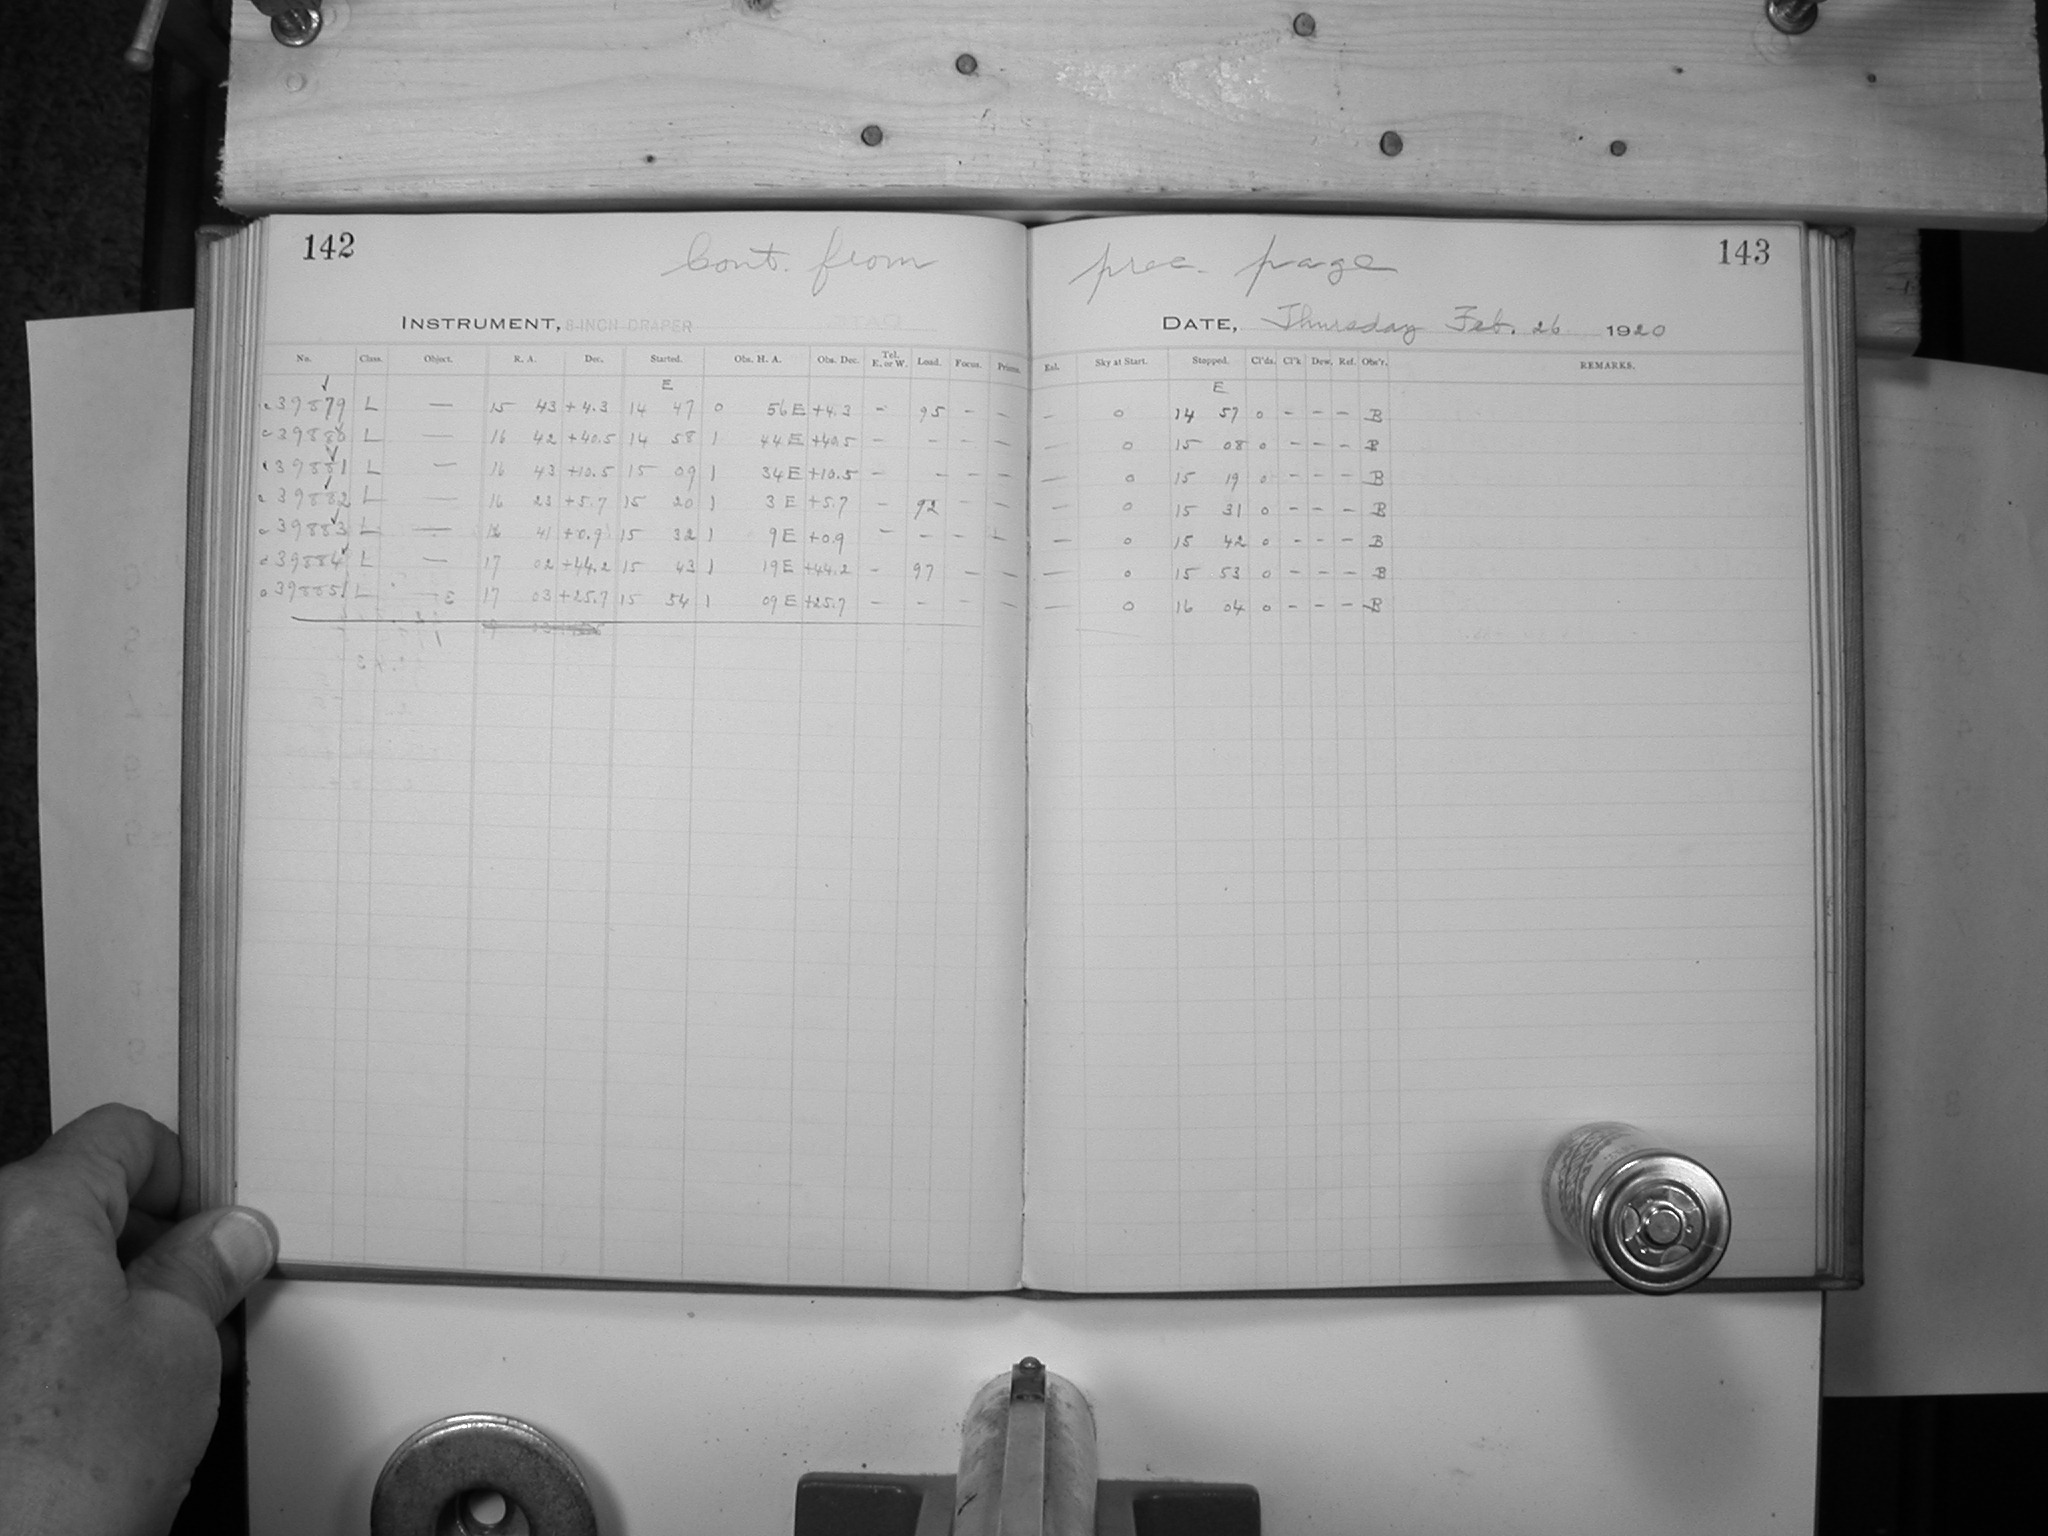 142
Cont. from prec. page
143
INSTRUMENT, 8-INCH DRAPER
DATE, Thursday Feb. 26 1920
No. Class. Object. R. A. Dec. Started. Obs. H. A. Obs. Dec. Tel. E. or W. Load. Focus. Prisms. Enl. Sky at Start. Stopped. Cl'ds. Cl'k Dew. Ref. Obs'r. REMARKS.
E E
39879 L — 15 43 +4.3 14 47 0 56 E +4.3 - 95 - - - 0 14 57 0 - - - B
39880 L — 16 42 +40.5 14 58 1 44 E +40.5 - - - - 0 15 08 0 - - - B
39881 L — 16 43 +10.5 15 09 1 34 E +10.5 - - - - - 0 15 19 0 - - - B
39882 L — 16 23 +5.7 15 20 1 3 E +5.7 - 92 - - - 0 15 31 0 - - - B
39883 L — 16 41 +0.9 15 32 1 9 E +0.9 - - - - 0 15 42 0 - - - B
39884 L — 17 02 +44.2 15 43 1 19 E +44.2 - 97 - - — 0 15 53 0 - - - B
39885 L — E 17 03 +25.7 15 54 1 09 E +25.7 - - - - — 0 16 04 0 - - - B